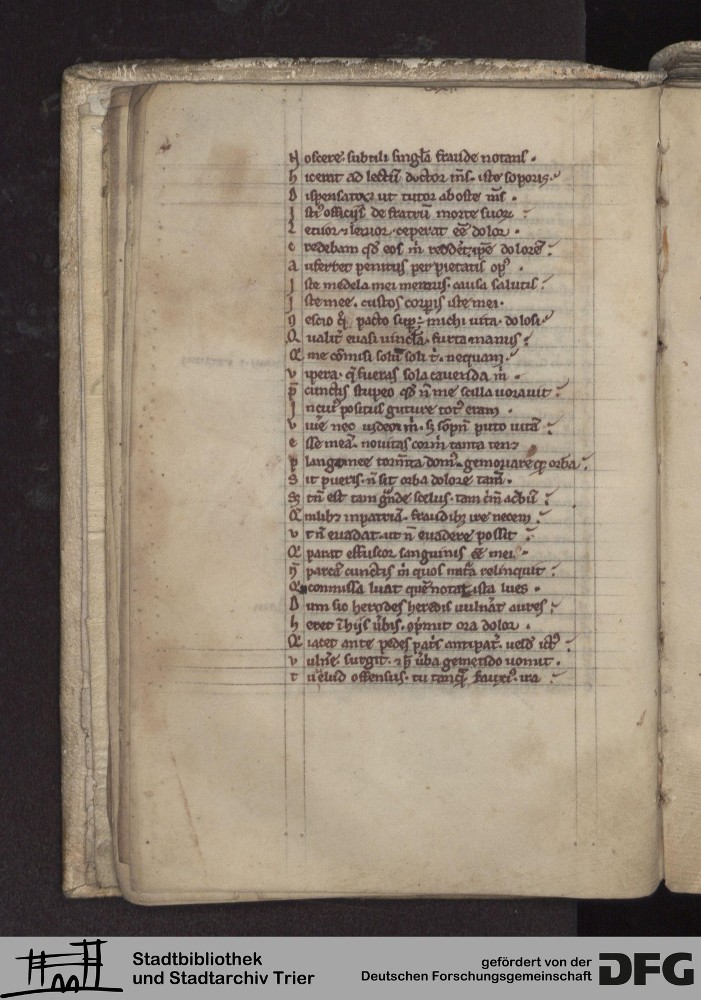 Noscere. subtili singła fraude notans.
hic erat ad lectū doctor ms. iste soporis.
Dispensator ut tutor ab oste ms.
Isti officiis de fratrū morte suor
Letior & lenior ceperat ee dolor.
credebam qd eos m reddet ipe dolore
auferret penitus per pietatis op9.
Iste medela mei meroris. causa salutis
Iste mee. custos corporis iste mei.
pacto sup michi uita. dolosi
Qualit euasi uincla. furta manus
Q me comisi solū soli t. nequam.
vipera. q fueras sola cauenda m.
p cunctis stupeo qd n me scilla uorauit
In cui9 positus guture tot9 eram.
viue neo uideor m. s sopn puto uitā
esse mea. nouitas corm tanta tenz
plango mee domus gemo
Sit pueris. n sit orba dolore tam.
tn est tam gnde scelus. tam
Q inpatriā. fraudib ire necem
vt n euadat. ut n euadere possit
Q parat effuscor sanguinis ee mei.
N parcā cunctis m quos relinquit
Q conmissa luat que notat ista lues.
Dum sic herodes heredis uulnat aures
heret i hiis ubis. opmit ora dolor.
Q iacet ante pedes patis antipat. uelud ict9
vulne. surgit. & p uba gemendo uomit.
tu elud offensus. tu tanq ira
Stadtbibliothek
und Stadtarchiv Trier
gefördert von der
Deutschen Forschungsgemeinschaft
DFG